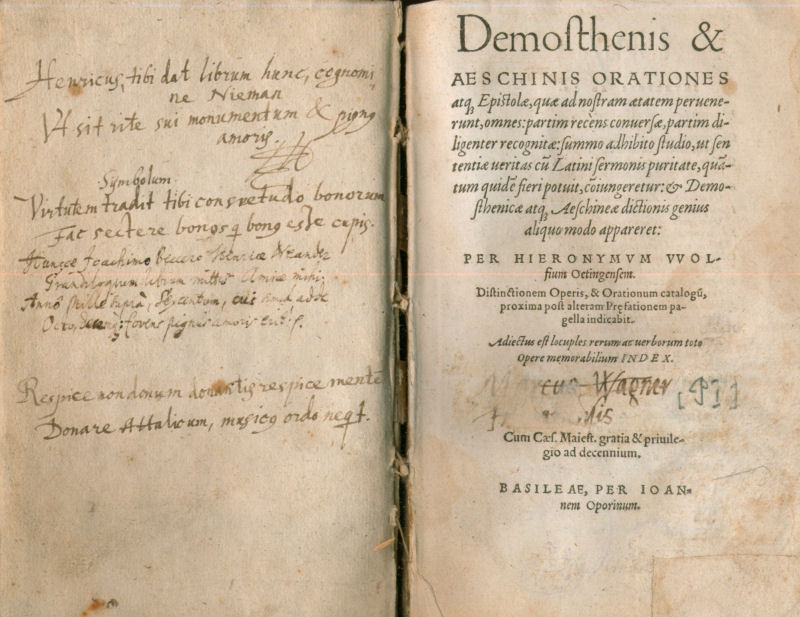 Henricus, tibi dat librum hunc, cognomi-
ne Nieman
Vt sit rite sui monumentum & pignus
amoris.
Symbolum.
Virtutem tradit tibi consvetudo bonorum
Fac sectere bonos q bong esse cupis.
Joachimo Henricus Neander
Grandiloquum librum mittit Amice mihi.
Anno Mille supra, simul adde
pignus amoris erit.
Respice non donum donantis respice mentē
Donare Attalicum, musicq ordo neqt.
Demoſthenis &
AESCHINIS ORATIONES
atq; Epiſtolæ, quæ ad noſtram ætatem peruene-
runt, omnes: partim recèns conuerſæ, partim di-
ligenter recognitæ: ſummo adhibito ſtudio, ut ſen
tentiæ veritas cũ Latini ſermonis puritate, quã-
tum quidẽ fieri potuit, cõiungeretur: & Demo-
ſthenicæ atq; Aeſchineæ dictionis genius
aliquo modo appareret:
PER HIERONYMVM VVOL-
fium Oetingenſem.
Diſtinctionem Operis, & Orationum catalogũ,
proxima poſt alteram Præfationem pa-
gella indicabit.
Adiectus eſt locuples rerum ac verborum toto
Opere memorabilium INDEX.
Marcus Wagner
Cum Cæſ. Maieſt. gratia & priuile-
gio ad decennium.
BASILEAE, PER IOAN-
nem Oporinum.